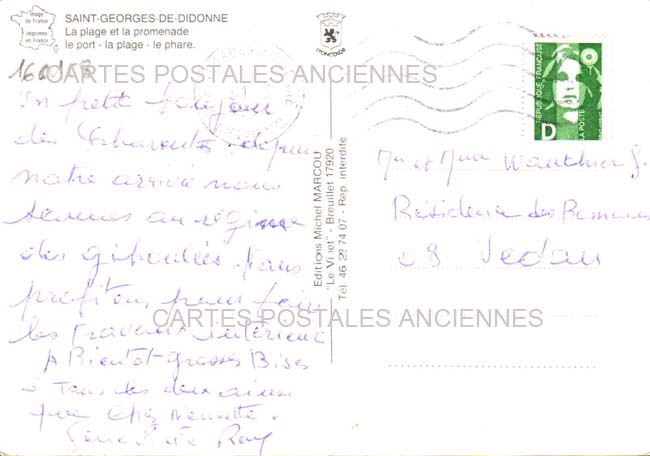 Image
de France
imprimée
en France
SAINT-GEORGES-DE-DIDONNE
La plage et la promenade
le port - la plage - le phare.
LYONCOLOR
CARTES POSTALES ANCIENNES
Un petit bonjour
des Charentes depuis
notre arrivée nous
sommes au régime
des giboulées. Nous
profitons pour faire
les travaux intérieur
A Bientot - grosses Bises
à Tous les deux ainsi
que chez
Editions Michel MARCOU
"Le Vi net" - Breuillet 17920
Tél. 46 22 74 07 - Rep. interdite
REPUBLIQUE FRANÇAISE
D
LA POSTE
Mr et Mme Wauthier G.
Résidence des Romains
08 Sedan
CARTES POSTALES ANCIENNES